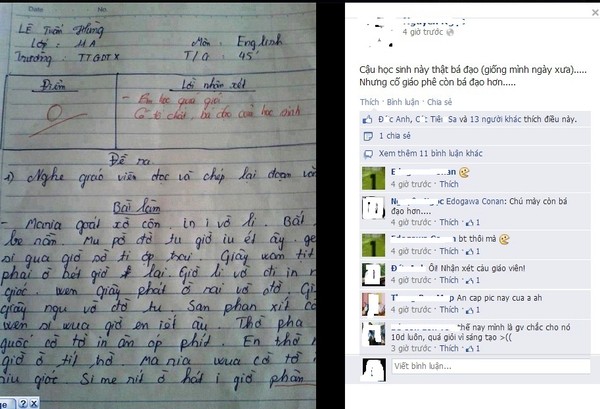 LÊ Tuấn Hùng
Lớp : 11A
Môn : English
Trường : TTGDTX
T/G : 45'
Điểm
Lời nhận xét
- Em học quá giỏi
Có tố chất, bá đạo của học sinh
0
Đề ra
1) Nghe giáo viên đọc và chép lại đoạn văn
Bài làm
- Mania quát xờ cồn, in i vờ li. Bất
be nần. Mu pờ đờ tu giờ iu ét ây. ge
si qua giờ sờ ti óp hai. Giây wam tit
phai ờ bét giờ lai. Giờ li vờ đi in n
giác. wen giây phai ờ nai vờ otờ. Gi
giây ngu vờ đờ tu. San phan xit cờ
wen si wua giờ en iét âu. Thờ pha
guốc cờ tờ in ăn op phit. En thờ n
giờ ờ tit hờ Ma nia wua cờ tờ i
niu giớc. Si me rit ờ hát i giờ phàn
ge ? X
4 giờ trước
Cậu học sinh này thật bá đạo (giống mình ngày xưa).....
Nhưng cố giáo phê còn bá đạo hơn.....
Thích · Bình luận · Chia sẻ
Đức Anh, Sa và 13 người khác thích điều này.
1 chia sẻ
Xem thêm 11 bình luận khác
4 giờ trước · Thích
Edogawa Conan: Chú mày còn bá
đạo hơn....
4 giờ trước · Thích · 1
bt thôi mà
4 giờ trước · Thích · 1
Ôi! Nhận xét cảu giáo viên!
4 giờ trước · Thích · 1
An cap pic nay cua a ah
4 giờ trước · Thích · 1
thế nay mình là gv chắc cho nó
10đ luôn, quá giỏi vì sáng tạo >:((
3 giờ trước · Thích · 1
Viết bình luận...